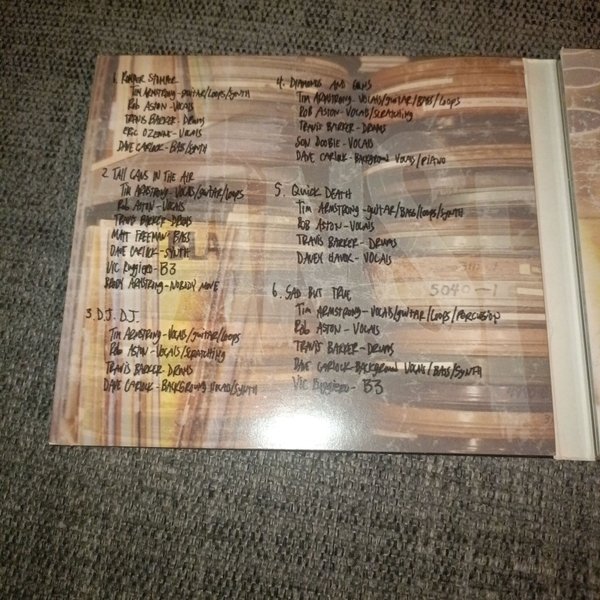 1. RUMBER STUMPER
TIM ARMSTRONG - GUITAR/LOOPS/SYNTH
ROB ASTON - VOCALS
TRAVIS BARKER - DRUMS
ERIC OZENNE - VOCALS
DAVE CARLOCK - BASS/SYNTH
2. TALL CANS IN THE AIR
TIM ARMSTRONG - VOCALS/GUITAR/LOOPS
ROB ASTON - VOCALS
TRAVIS BARKER - DRUMS
MATT FREEMAN - BASS
DAVE CARLOCK - SYNTH
VIC RUGGIERO - B3
BRODY ARMSTRONG - NOBODY MOVE
3. D.J. D.J.
TIM ARMSTRONG - VOCALS/GUITAR/LOOPS
ROB ASTON - VOCALS/SCRATCHING
TRAVIS BARKER - DRUMS
DAVE CARLOCK - BACKGROUND VOCALS/SYNTH
4. DIAMONDS AND GUNS
TIM ARMSTRONG - VOCALS/GUITAR/BASS/LOOPS
ROB ASTON - VOCALS/SCRATCHING
TRAVIS BARKER - DRUMS
SON DOOBIE - VOCALS
DAVE CARLOCK - BACKGROUND VOCALS/PIANO
5. QUICK DEATH
TIM ARMSTRONG - GUITAR/BASS/LOOPS/SYNTH
ROB ASTON - VOCALS
TRAVIS BARKER - DRUMS
DAVEY HAVOK - VOCALS
6. SAD BUT TRUE
TIM ARMSTRONG - VOCALS/GUITAR/LOOPS/PERCUSION
ROB ASTON - VOCALS
TRAVIS BARKER - DRUMS
DAVE CARLOCK - BACKGROUND VOCALS/BASS/SYNTH
VIC RUGGIERO - B3
5040-1